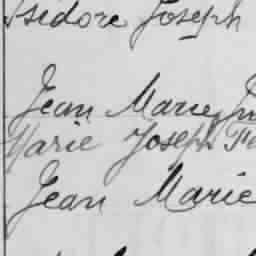 Isidore Joseph
Jean Marie
Marie Joseph
Jean Marie